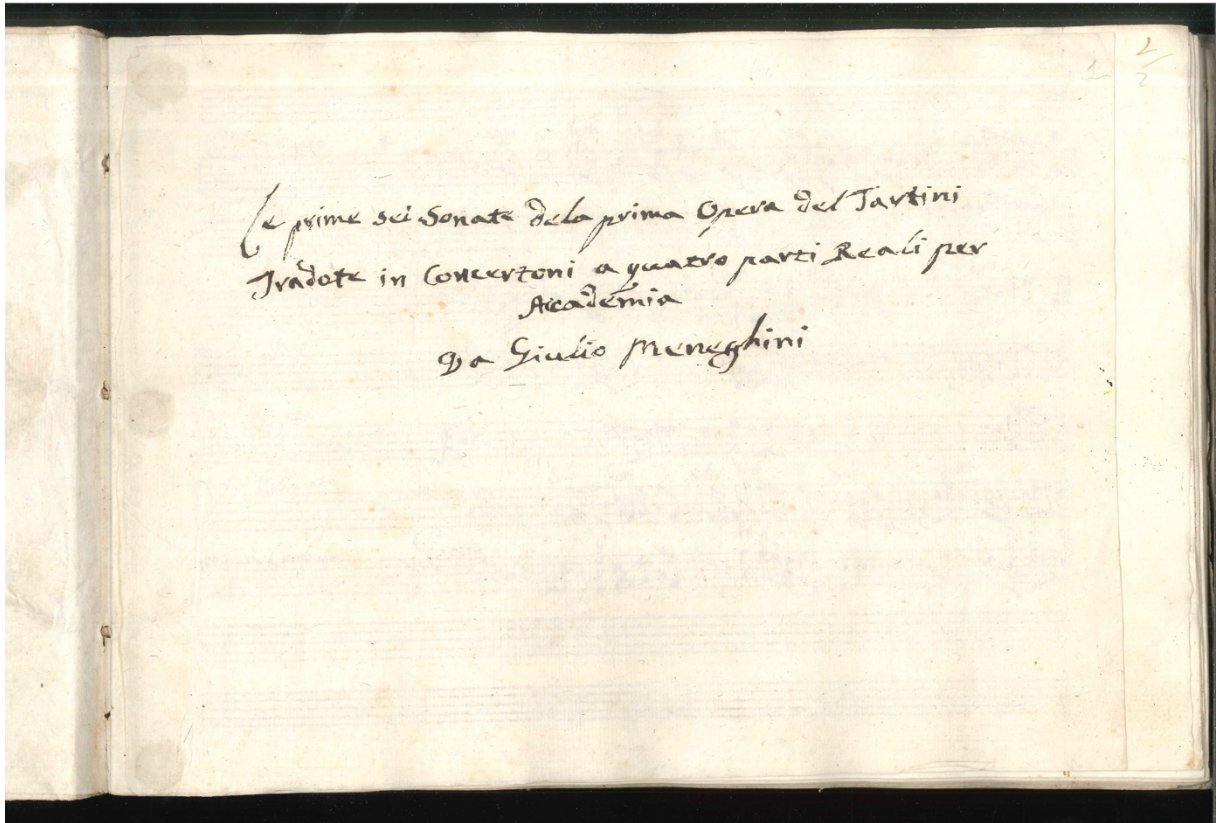 Le prime sei Sonate dela prima Opera del Tartini
Tradote in Concertoni a quatro parti Reali per
Accademia
Da Giulio Meneghini
1
2
2